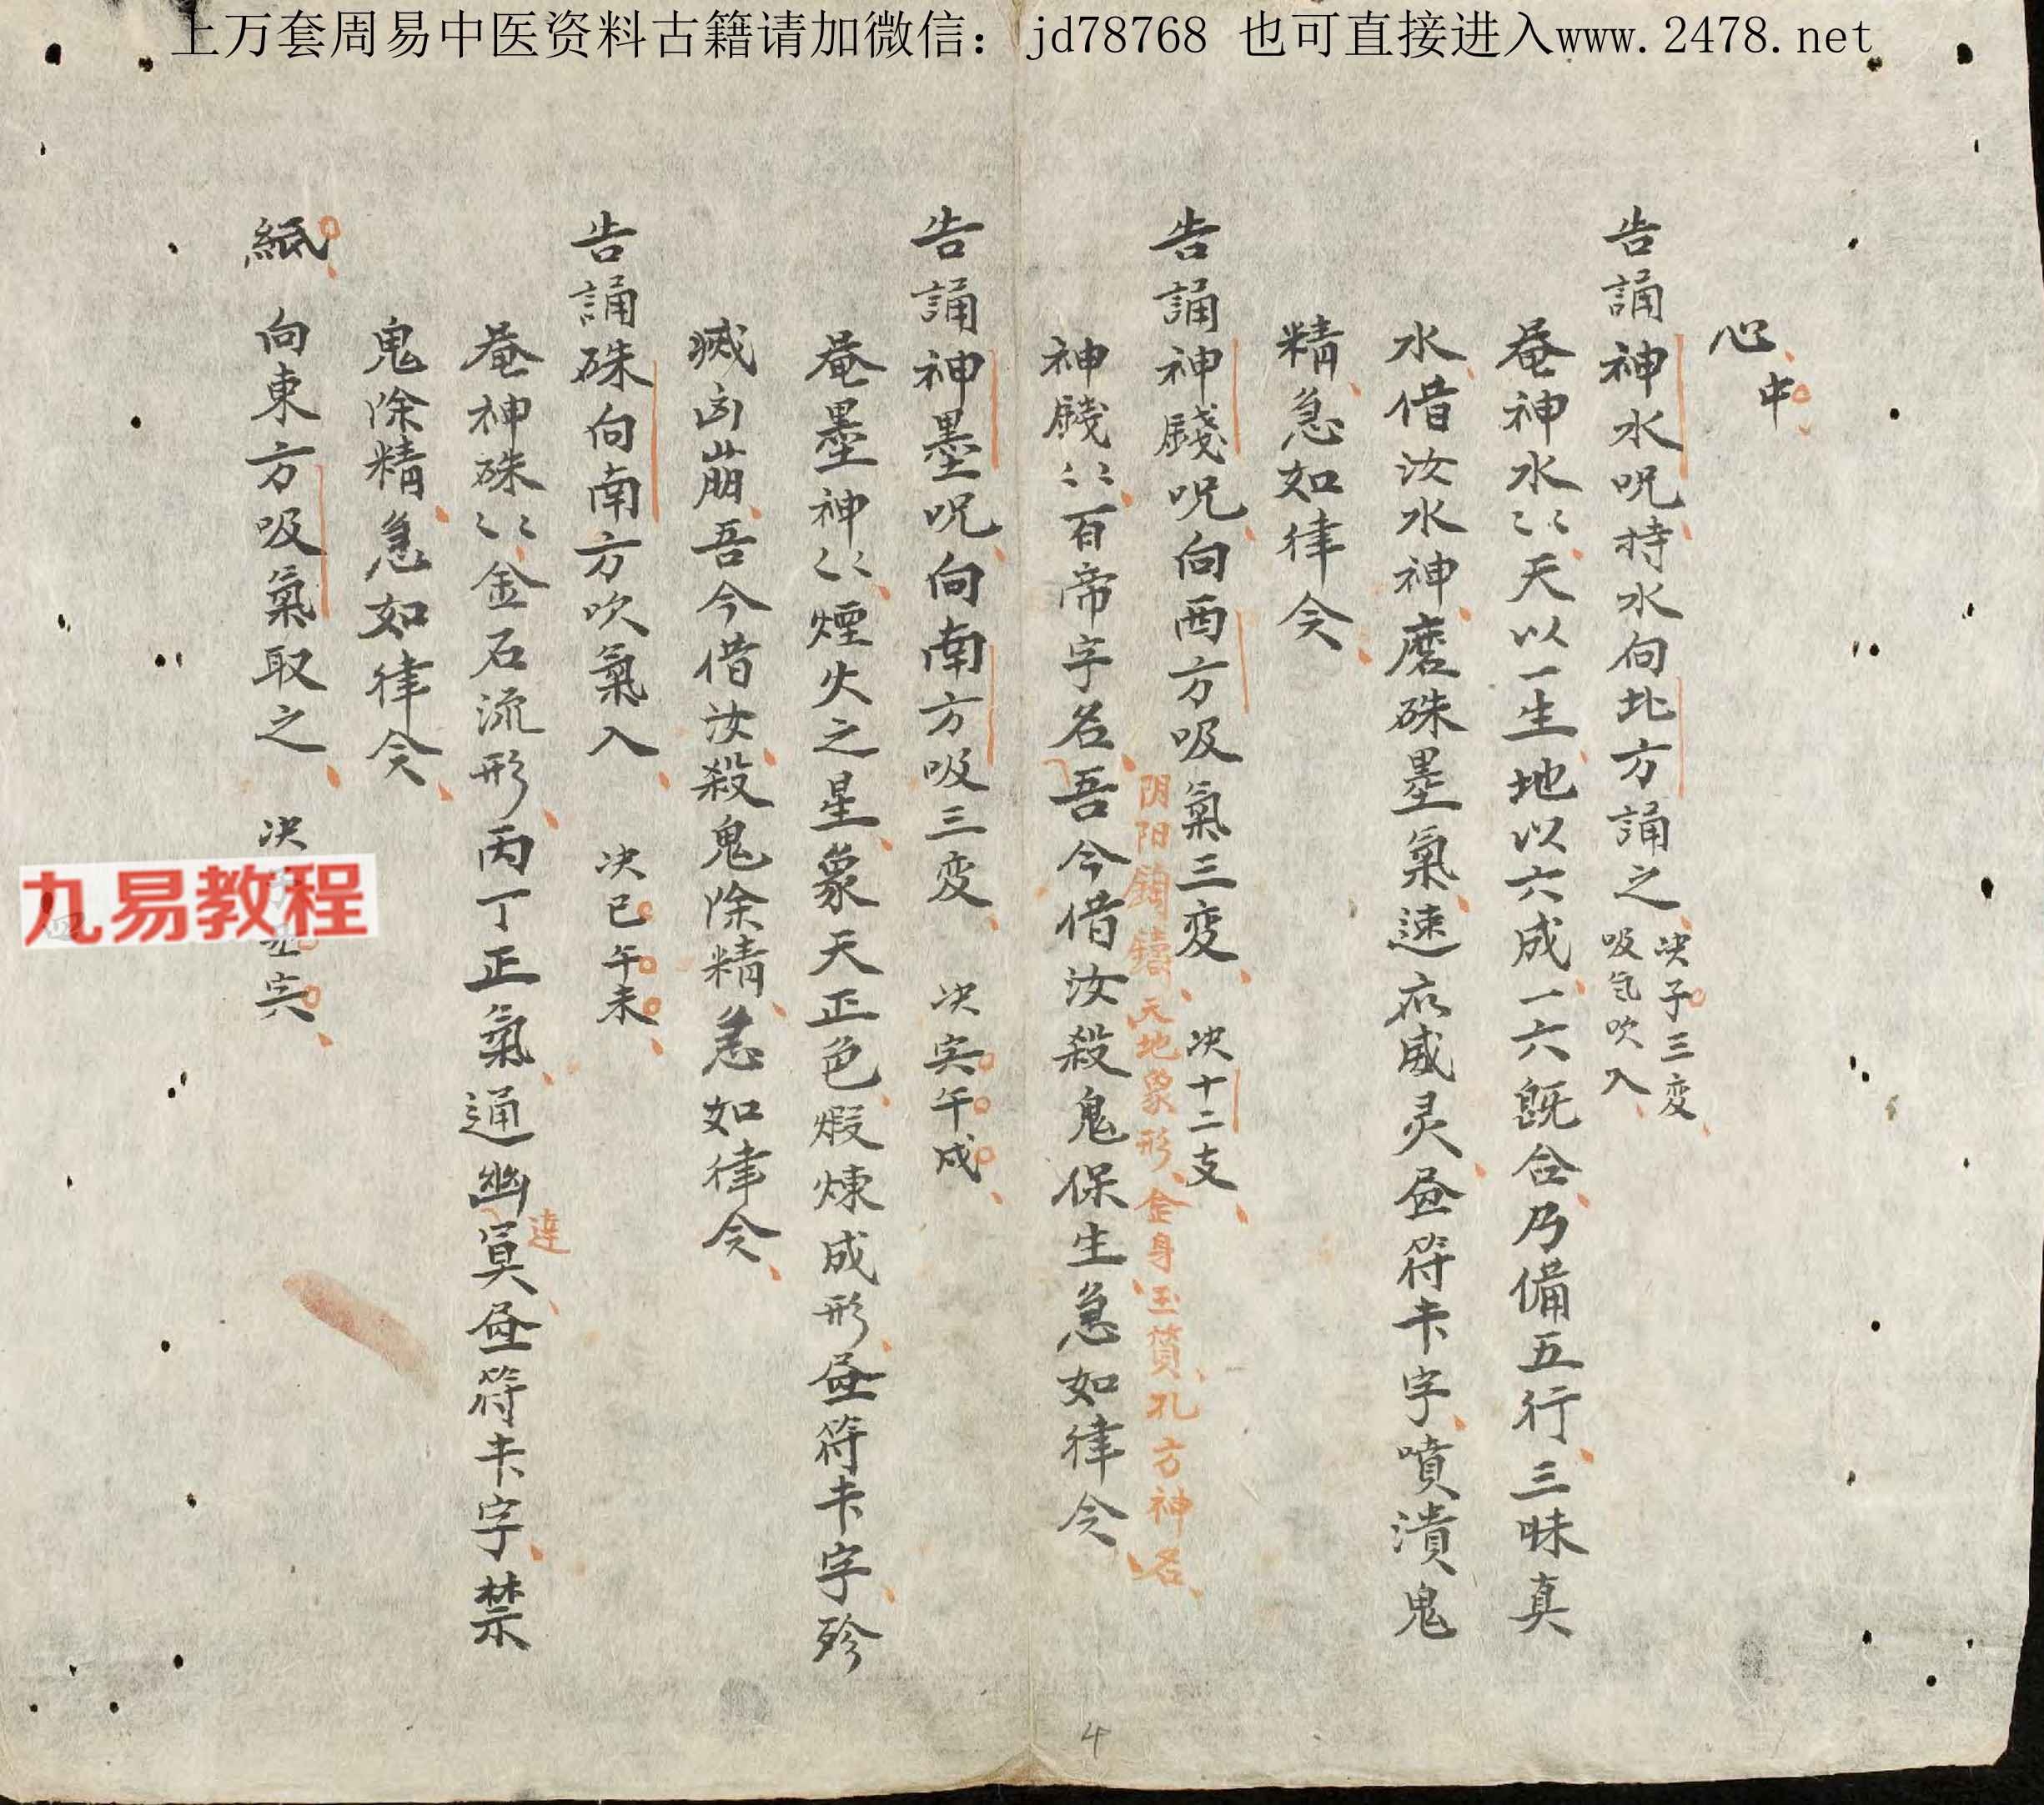 上万套周易中医资料古籍请加微信：jd78768 也可直接进入www.2478.net
心中
告誦神水呪持水向北方誦之 决子三変
吸气吹入
奄神水〻天以一生地以六成一六既合乃備五行三昧真
水借汝水神磨硃墨氣速应威灵昼符卡字噴潰鬼
精急如律令
告誦神餞呪向西方吸氣三変 决十二支
阴阳鑄天地象形金身玉質孔方神名
神餞〻百帝字名吾今借汝殺鬼保生急如律令
告誦神墨呪向南方吸三変 决寅午戍
奄墨神〻煙火之星象天正色煆煉成形昼符卡字殄
滅凶崩吾今借汝殺鬼除精急如律令
告誦硃向南方吹氣入 决巳午未
奄神硃〻金石流形丙丁正氣通幽冥昼符卡字禁
達
鬼除精急如律令
紙 向東方吸氣取之 决 丑寅
九易教程
4